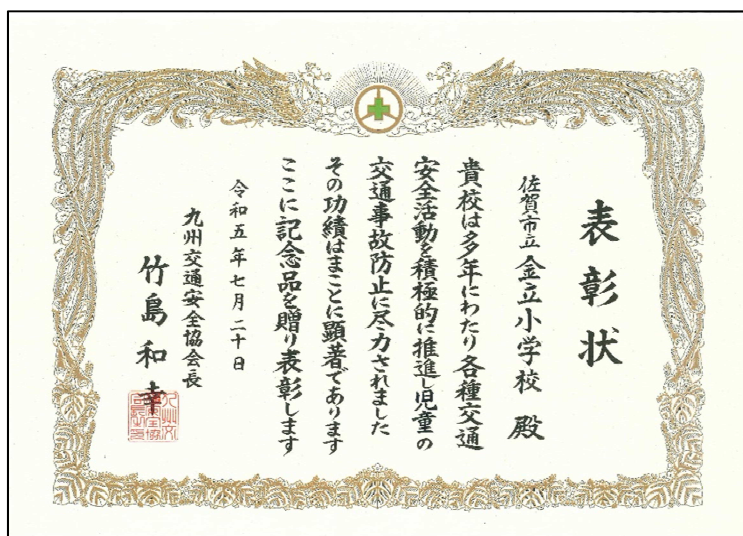 表彰状
佐賀市立 金立小学校 殿
貴校は多年にわたり各種交通
安全活動を積極的に推進し児童の
交通事故防止に尽力されました
その功績はまことに顕著であります
ここに記念品を贈り表彰します
令和五年七月二十日
九州交通安全協会長
竹島和幸